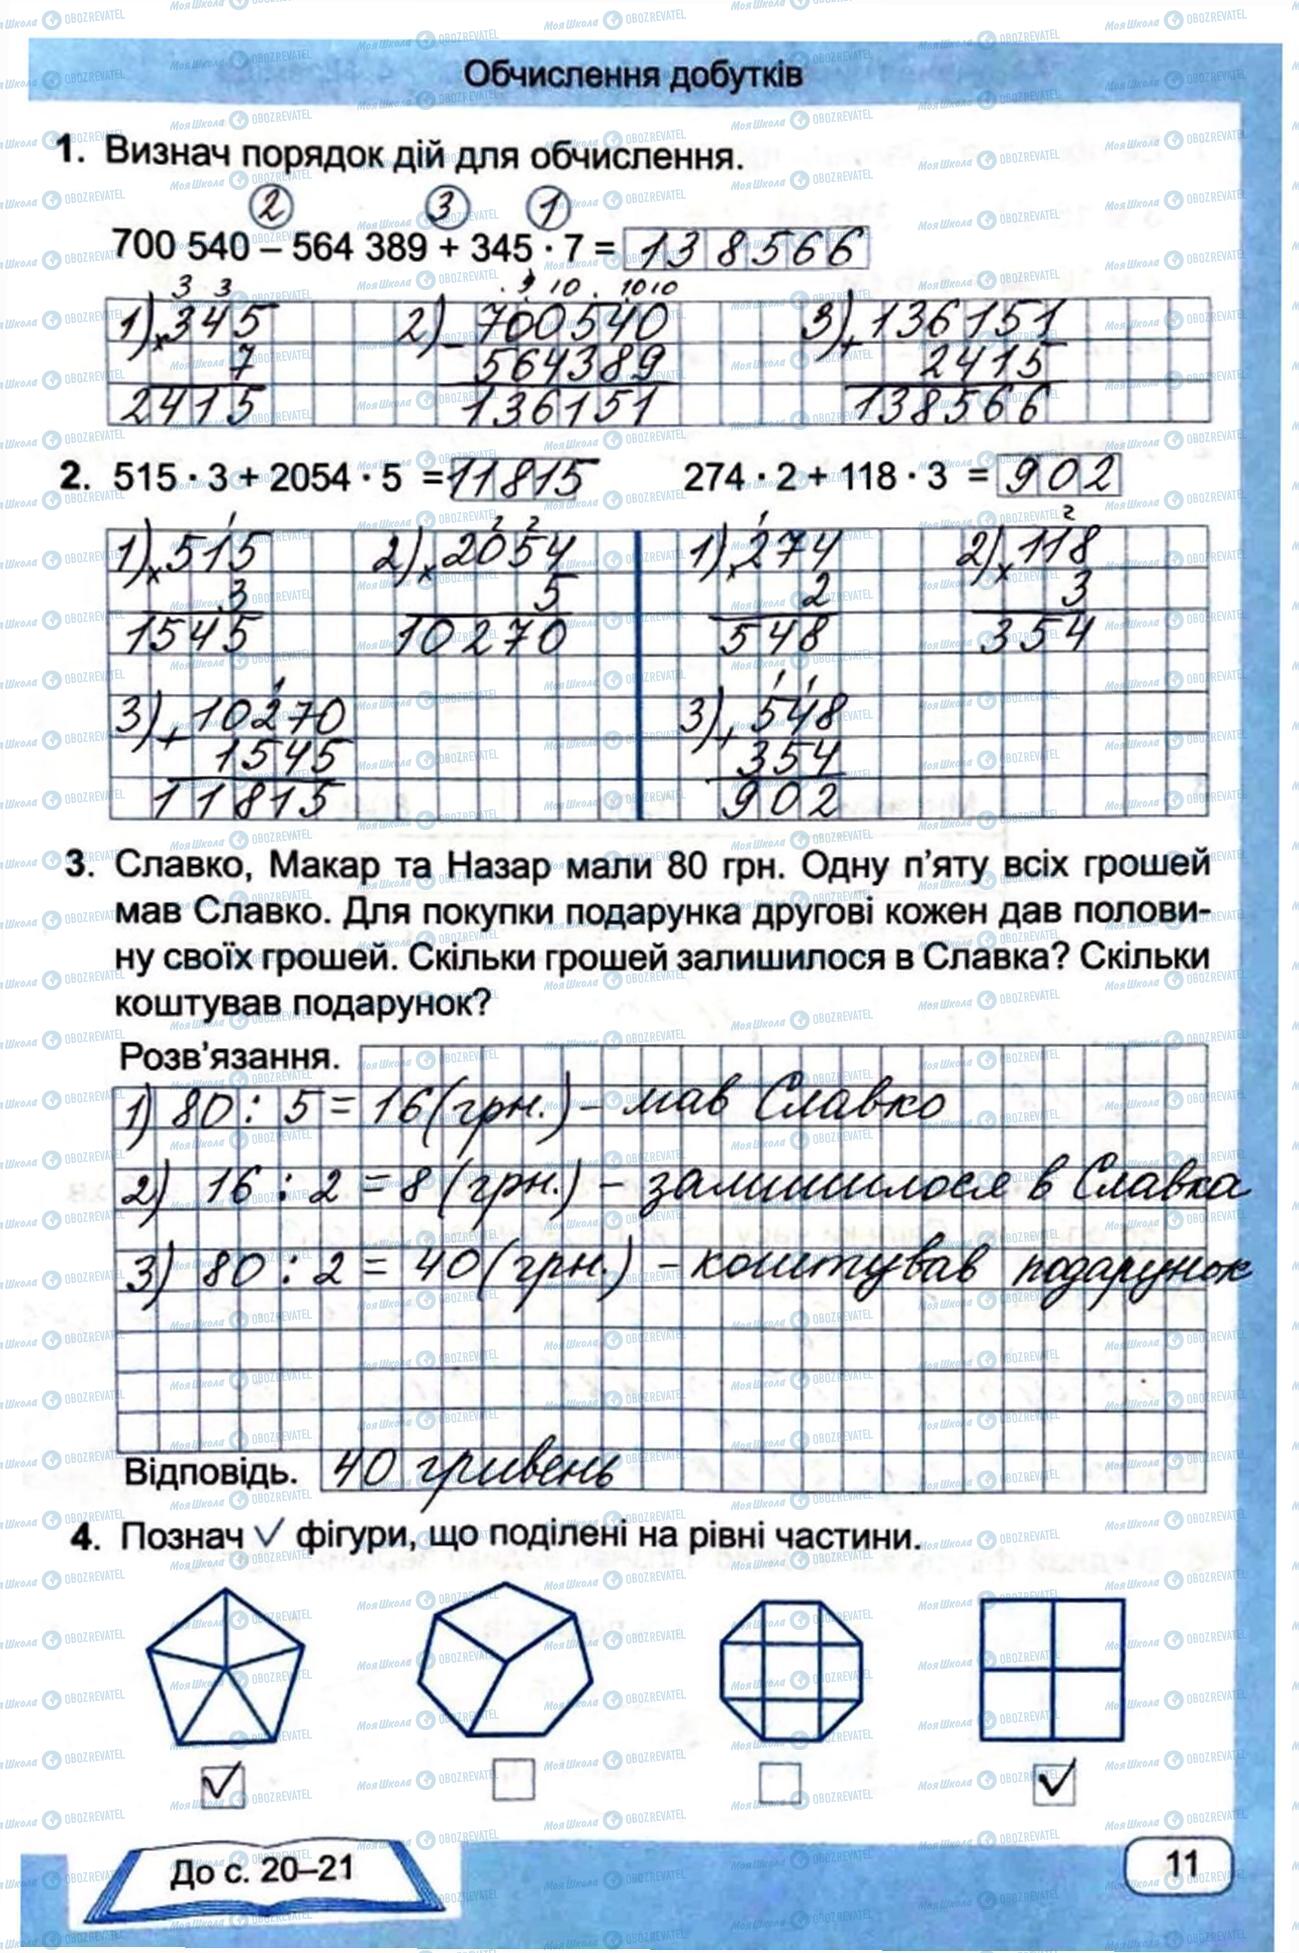 Обчислення добутків
1. Визнач порядок дій для обчислення.
2 3 1
700 540 – 564 389 + 345 · 7 = 138566
3 3 . 9 10 . 10 10
1) × 345 2) − 700540 3) + 136151
7 564389 2415
2415 136151 138566
2. 515 · 3 + 2054 · 5 = 11815 274 · 2 + 118 · 3 = 902
1 2 2 1 2
1) × 515 2) × 2054 1) × 274 2) × 118
3 5 2 3
1545 10270 548 354
1 1 1
3) + 10270 3) + 548
1545 354
11815 902
3. Славко, Макар та Назар мали 80 грн. Одну п’яту всіх грошей
мав Славко. Для покупки подарунка другові кожен дав полови-
ну своїх грошей. Скільки грошей залишилося в Славка? Скільки
коштував подарунок?
Розв’язання.
1) 80 : 5 = 16 (грн.) – мав Славко
2) 16 : 2 = 8 (грн.) – залишилося в Славка
3) 80 : 2 = 40 (грн.) – коштував подарунок
Відповідь. 40 гривень
4. Познач √ фігури, що поділені на рівні частини.
До с. 20–21
11
МояШкола OBOZREVATEL